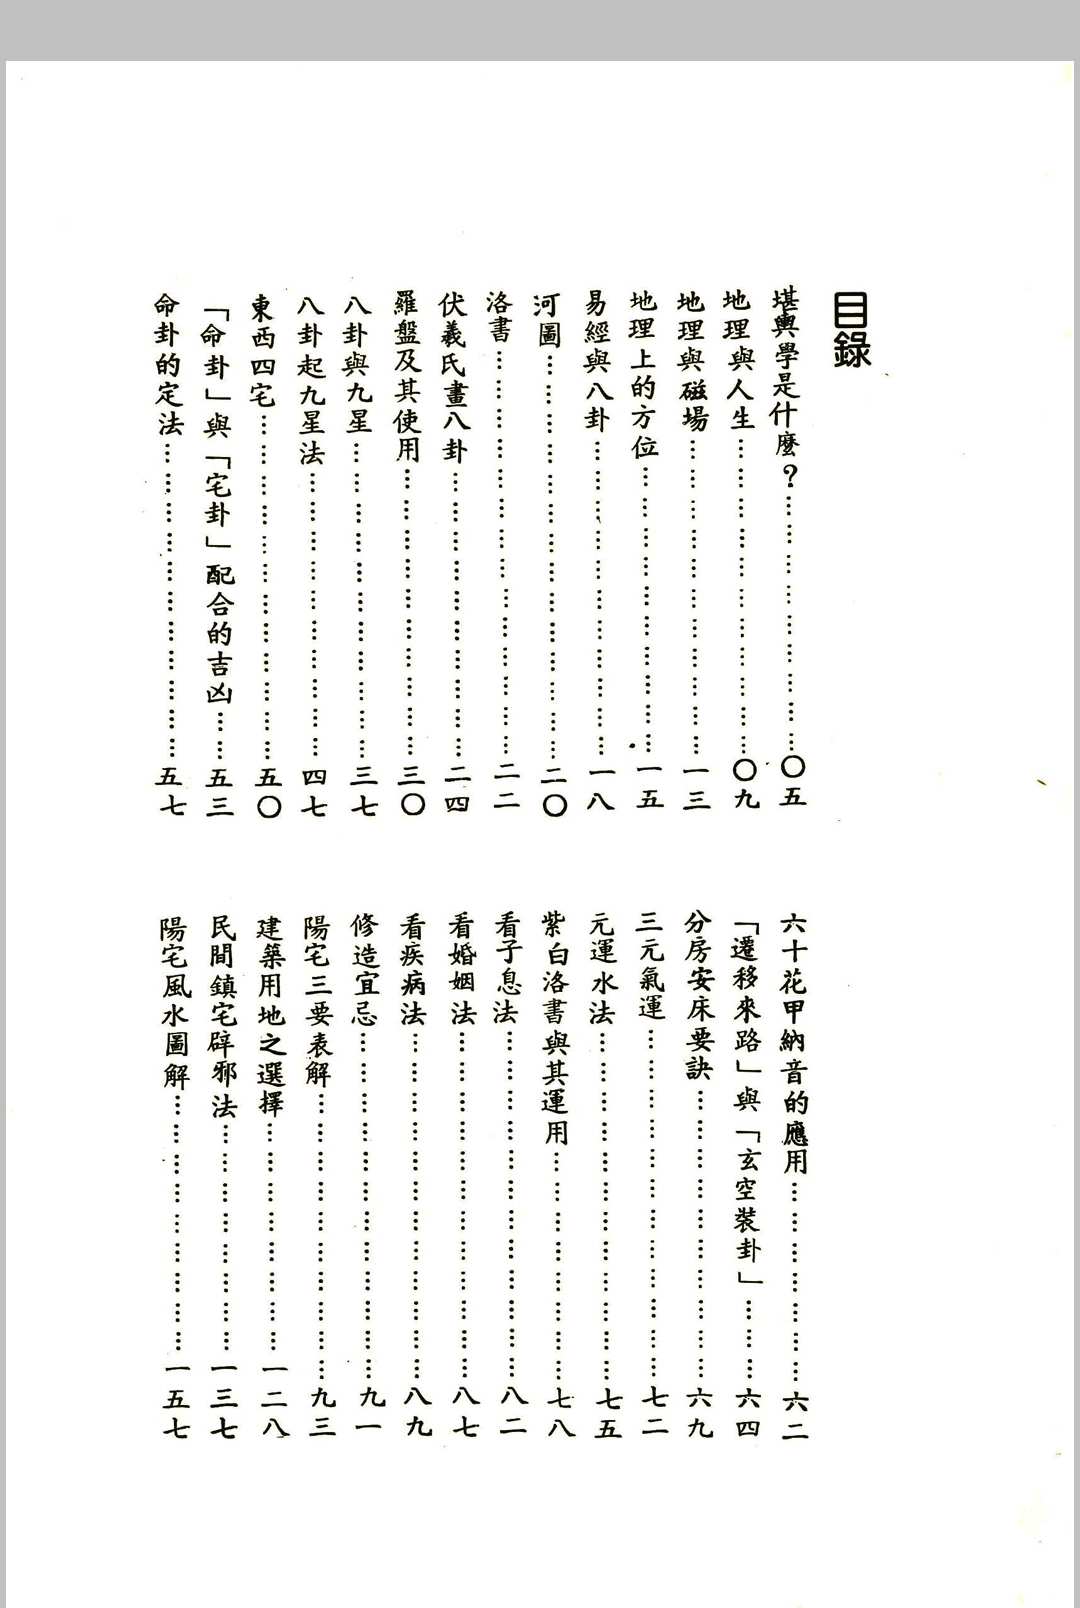 目錄
堪輿學是什麼？……………………………〇五
地理與人生……………………………〇九
地理與磁場……………………………一三
地理上的方位……………………………一五
易經與八卦……………………………一八
河圖……………………………二〇
洛書……………………………二二
伏義氏畫八卦……………………………二四
羅盤及其使用……………………………三〇
八卦與九星……………………………三七
八卦起九星法……………………………四七
東西四宅……………………………五〇
「命卦」與「宅卦」配合的吉凶……五三
命卦的定法……………………………五七
六十花甲納音的應用……………………六二
「遷移來路」與「玄空裝卦」………六四
分房安床要訣……………………………六九
三元氣運……………………………七二
元運水法……………………………七五
紫白洛書與其運用……………………七八
看子息法……………………………八二
看婚姻法……………………………八七
看疾病法……………………………八九
修造宜忌……………………………九一
陽宅三要表解……………………………九三
建築用地之選擇……………………一二八
民間鎮宅辟邪法……………………一三七
陽宅風水圖解……………………一五七